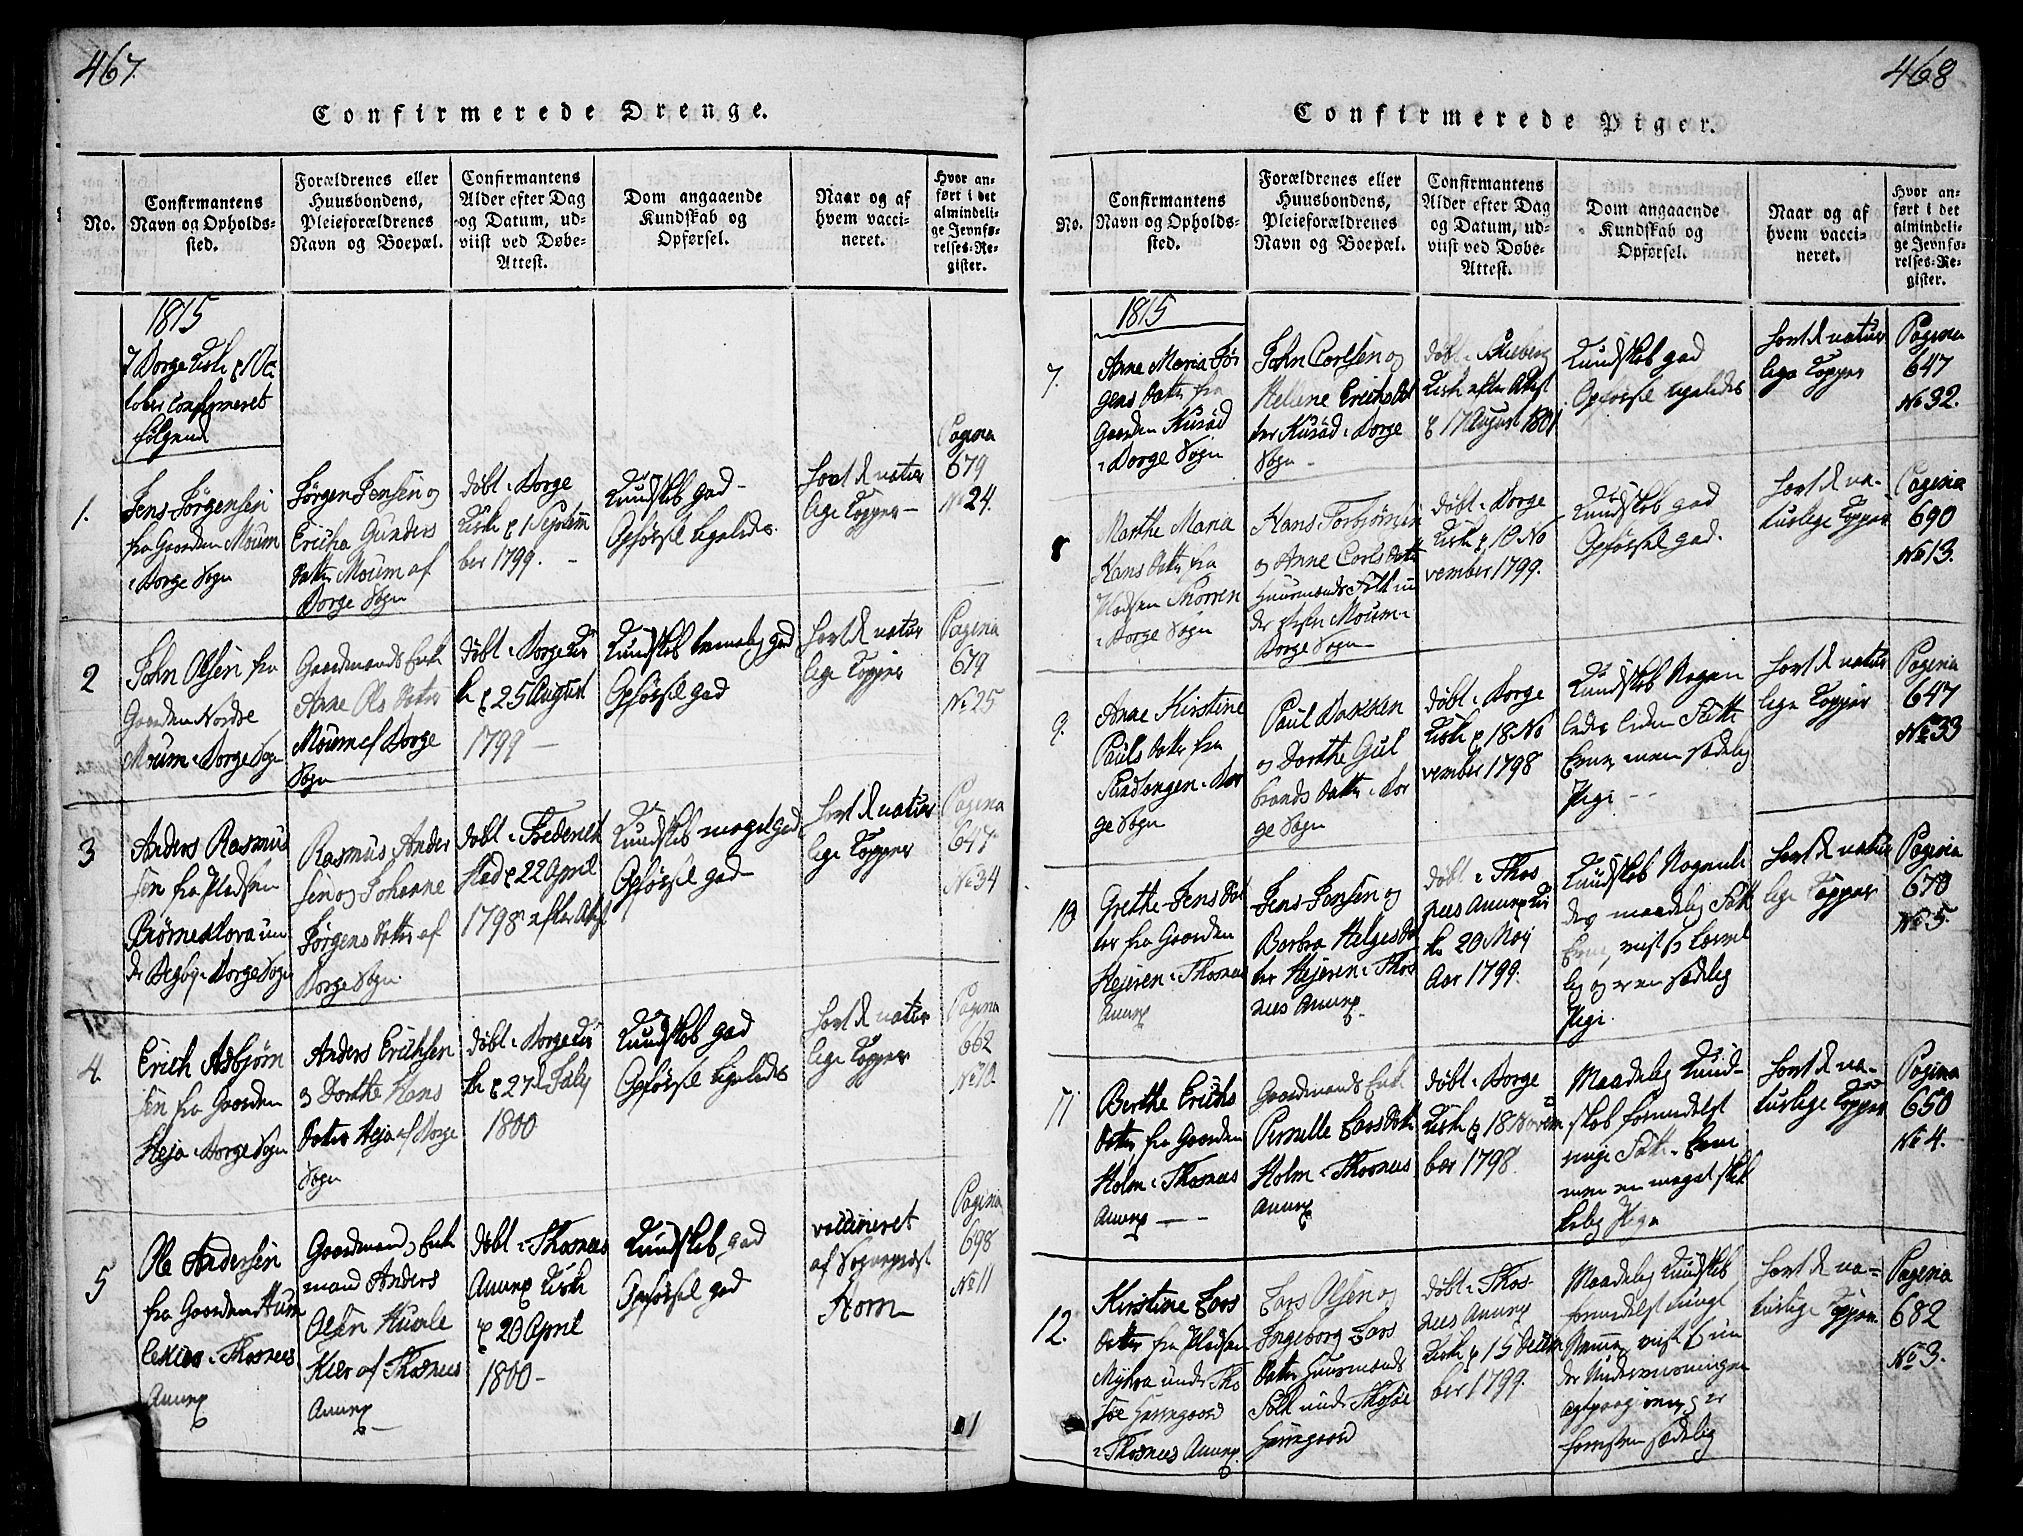 467.
Confirmerede Drenge.
No.
Confirmantens
Navn og Opholds-
sted.
Forældrenes eller
Huusbondens,
Pleieforældrenes
Navn og Boepæl.
Confirmantens
Alder efter Dag
og Datum, ud-
viist ved Døbe-
Attest.
Dom angaaende
Kundskab og
Opførsel.
Naar og af
hvem vacci-
neret.
Hvor an-
ført i det
almindeli-
ge Jevnfø-
relses-Re-
gister.
1815
I Borge Kirke
tober Confirmeret
følgende
1.
Jens Jørgensen
fra Gaarden Moum
i Borge Sogn
Jørgen Jensen og
Ericha Gunders
datter Moum af
Borge Sogn
døbt i Borge
Kirke 1 Septem
ber 1799. -
Kundskab god -
Opførsel ligeledes
havt de natur
lige Kopper -
Pagina
679
No 24.
2
John Olsen fra
Gaarden Nordre
Moum i Borge Sogn
Gaardmands Enke
Anne Ols datter
Moum af Borge
Sogn
døbt i Borge Kir
ke 25 August
1799 -
Kundskab temmelig god
Opførsel god
havt de natur
lige Kopper
Pagina
679
No 25
3
Anders Rasmus
sen fra Pladsen
Biørneklova un
der Begby i Borge Sogn
Rasmus Ander
sen og Johanne
Jørgens datter af
Borge Sogn
døbt i Frederich
stad 22 April
1798 efter Attest
Kundskab meget god
Opførsel god
havt de natur
lige Kopper
Pagina
647
No 34
4.
Erich Asbjørn
sen fra Gaarden
Heja i Borge Sogn
Anders Erichsen
og Dorthe Hans
datter Heja af Borge
Sogn
døbt i Borge Kir
ke 27 July
1800
Kundskab god
Opførsel ligeledes
havt de natur
lige Kopper
Pagina
662
No 10.
5
Ole Andersen
fra Gaarden Hum
lekier i Thosnees
Annex
Gaardmand Enke
mand Anders
Olsen Humle
Kier af Thosnees
Annex
døbt i Thosnees
Annex Kirke
20 April
1800 -
Kundskab god
Opførsel god
vaccineret
af Sognepræst
Storm
Pagina
698
No 11
468
Confirmerede Piger.
No.
Confirmantens
Navn og Opholds-
sted.
Forældrenes eller
Huusbondens,
Pleieforældrenes
Navn og Boepæl.
Confirmantens
Alder efter Dag
og Datum, ud-
viist ved Døbe-
Attest.
Dom angaaende
Kundskab og
Opførsel.
Naar og af
hvem vacci-
neret.
Hvor an-
ført i det
almindeli-
ge Jevnfø-
relses-Re-
gister.
1815
7.
Anne Maria Jør
gens datter fra
Gaarden Kusød
i Borge Sogn
Helene Erichs dat
ter Kusød i Borge
Sogn -
døbt i Skieberg
Kirke efter Attest
17 August 1801
Kundskab god
Opførsel ligeledes
havt de natur
lige Kopper
Pagina
647
No 32.
8
Marthe Maria
Hans datter fra
Pladsen
i Borge Sogn
Hans Torbiørnsen
og Anne Carls datter
Huusmands Folk un
der Moum i
Borge Sogn
døbt i Borge
Kirke 10 No
vember 1799.
Kundskab god
Opførsel god.
havt de na-
turlige Kopper
Pagina
690
No 13.
9.
Anne Kirstine
Pauls datter fra
i Bor
ge Sogn
Paul Bakken
og Dorthe Gul
brands datter i Bor
ge Sogn
døbt i Borge
Kirke 18 No
vember 1798
Kundskab Nogen
ledes liden Fatte
Evne, men sædelig
Pige - -
havt de natur
lige Kopper
Pagina
647
No 33
10
Grethe Jens dat
ter fra Gaarden
Hejeren i Thosnees
Annex
Jens Jensen og
Barbra Helges dat
ter Hejeren i Thos
nees Annex
døbt i Thos
nees Annex Kir
ke 20 May
Aar 1799.
Kundskab Nogenle
des maadelig Fatt
Evne,
lig og er en sædelig
Pige.
havt de natur
lige Kopper
Pagina
670
No 5
11
Berthe Erichs
datter fra Gaarden
Holm i Thosnees
Annex
Gaardmands Enke
Pernelle Lars datter
Holm i Thosnees
Annex
døbt i Borge
Kirke 18 Novem
ber 1798.
Maadelig Kund-
skab formedelst
ringe Fatte Evne
men en meget skik
kelig Pige
havt de na-
turlige Kopper
Pagina
650
No 4.
12.
Kirstine Lars
datter fra Pladsen
Myhra under Tho
søe Herregaard
i Thosnees Annex.
Lars Olsen og
Ingeborg Lars
datter Huusmands
Folk under Thosøe
Herregaard
døbt i Thos-
nees Annex
Kirke 15 Decem
ber 1799.
Maadelig Kundskab
formedelst
Nemme,
der Underviisningen
er
sædelig
havt de na-
turlige Kopper
Pagina
682
No 3.